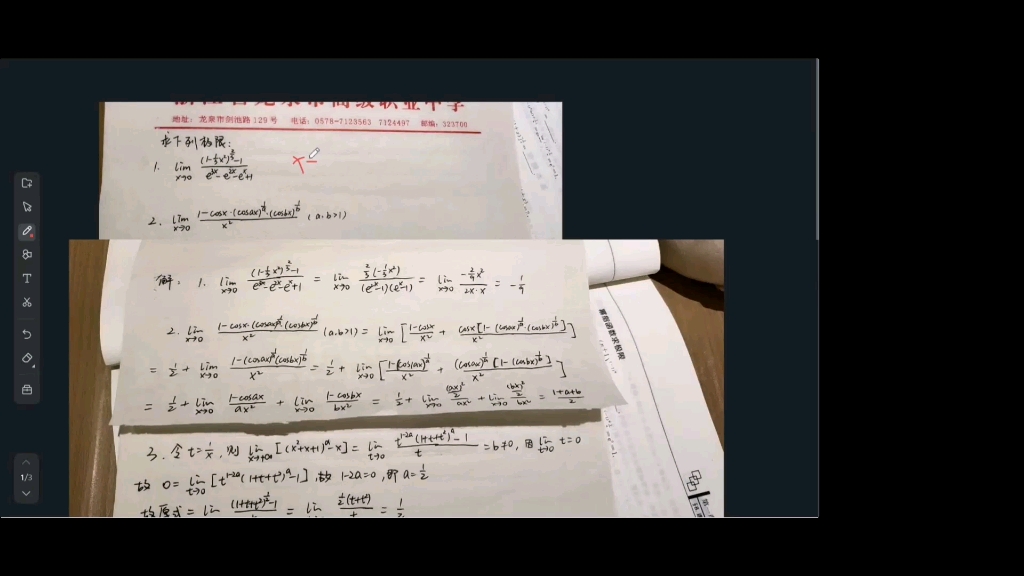 地址：龙泉市剑池路129号 电话：0578-7123563 7124497 邮编：323700
求下列极限：
1. lim x→0 ((1-1/3x²)^(2/3)-1)/(e^(3x)-e^(2x)-e^x+1) x-
2. lim x→0 (1-cosx·(cosax)^(1/a)·(cosbx)^(1/b))/x² (a.b>1)
解：1. lim x→0 ((1-1/3x²)^(2/3)-1)/(e^(3x)-e^(2x)-e^x+1) = lim x→0 (2/3(-1/3x²))/((e^(2x)-1)(e^x-1)) = lim x→0 (-2/9x²)/(2x·x) = -1/9
2. lim x→0 (1-cosx·(cosax)^(1/a)(cosbx)^(1/b))/x² (a.b>1) = lim x→0 [(1-cosx)/x² + (cosx[1-(cosax)^(1/a)·(cosbx)^(1/b)])/x²]
= 1/2 + lim x→0 (1-(cosax)^(1/a)(cosbx)^(1/b))/x² = 1/2 + lim x→0 [(1-(cosax)^(1/a))/x² + ((cosax)^(1/a)[1-(cosbx)^(1/b)])/x²]
= 1/2 + lim x→0 (1-cosax)/ax² + lim x→0 (1-cosbx)/bx² = 1/2 + lim x→0 ((ax)²/2)/ax² + lim x→0 ((bx)²/2)/bx² = (1+a+b)/2
3. 令t=1/x, 则 lim x→+∞ [(x²+x+1)^a-x] = lim t→0 (t^(1-2a)(1+t+t²)^a-1)/t = b≠0, 因 lim t→0 t=0
故 0= lim t→0 [t^(1-2a)(1+t+t²)^a-1], 故 1-2a=0, 即 a=1/2
故原式= lim ((1+t+t²)^(1/2)-1)/t = lim (1/2(t+t²))/t = 1/2
1/3